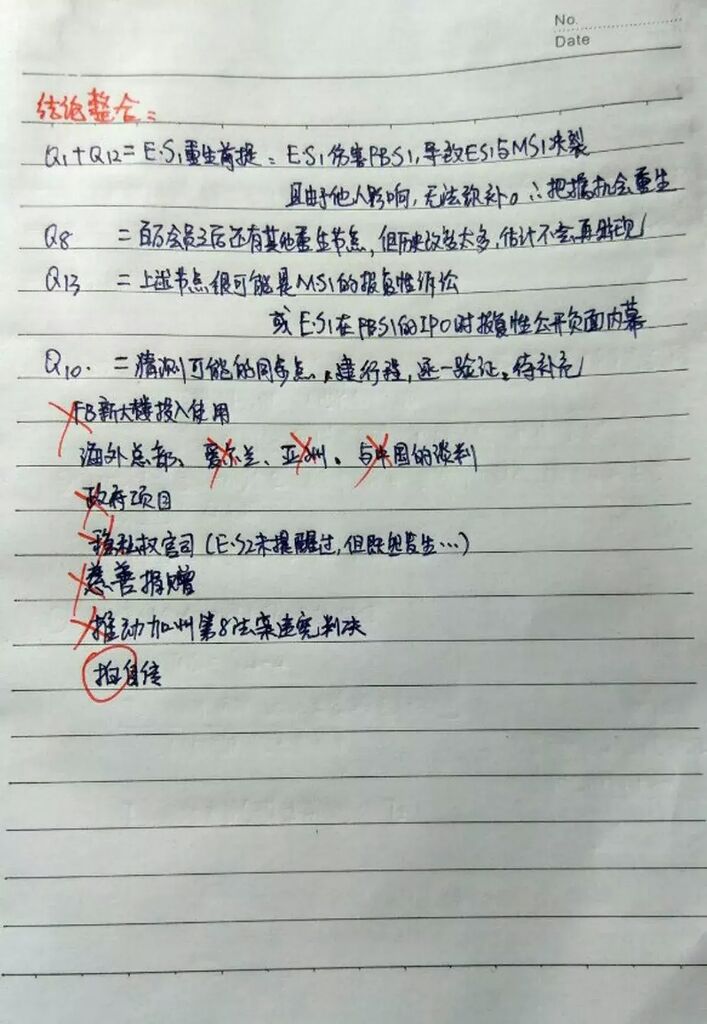 No.
Date
结论整合:
Q1+Q12= E.S1重生前提: E.S1伤害FBS1,导致ES1与MS1决裂
且由于他人影响,无法弥补。∴把握机会重生
Q8 =百万会员之后还有其他重生节点,但历史改变太多,估计不会再出现
Q13 =上述节点很可能是MS1的报复性诉讼
或E.S1在FBS1的IPO时报复性公开负面内幕
Q10. =猜测可能的同步点,建行程,逐一验证。待补充
FB新大楼投入使用
海外总部、爱尔兰、亚州、与中国的谈判
政府项目
隐私权官司(E.S2未提醒过,但既坦发生…)
慈善捐赠
推动加州第8法案违宪判决
拍自传